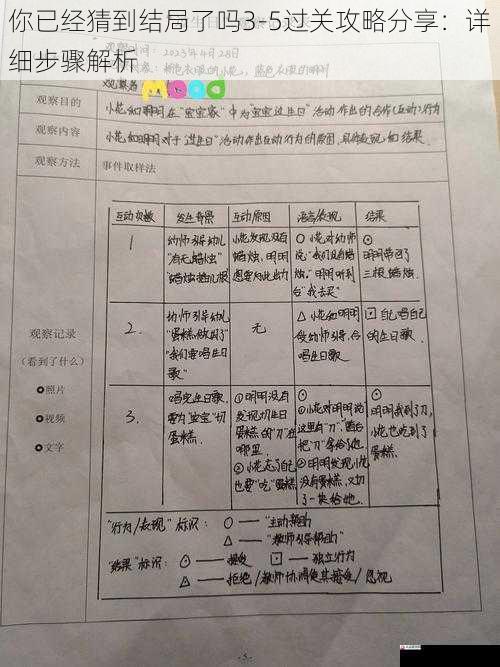 你已经猜到结局了吗3-5过关攻略分享：详
细步骤解析
观察时间：2023年4月28日
粉色衣服的小花，蓝色衣服的明明
观察者
mood
观察目的
小花和明明在“宝宝家”中为“宝宝过生日”活动作出的合作(互动)行为
观察内容
小花和明明对于“过生日”活动作出互动行为的原因、具体表现和结果。
观察方法
事件取样法
互动次数 发生背景 互动原因 语言/表现 结果
1
幼师引导幼儿
“有无蜡烛”
小花发现没有
蜡烛，明明
想要为此出力
○ 小花对幼师
说“我们没有蜡
烛。”明明听到
后“我去买”
⊙
明明带回了
三根蜡烛。
2.
幼师引导幼儿
“我们要唱生日
歌”
无
△ 小花和明明
受幼师引导，合
唱生日歌
⊡ 自己唱自己
的生日歌
3.
唱完生日歌，
需为“宝宝”切
蛋糕.
①明明没有
发现切生日
蛋糕的“刀”在
哪里.
②小花忘了自己
也要“吃”蛋糕
○
①小花对明明说
“这里有‘刀’”，
把“刀”拿给了他
②明明发现小花
没有蛋糕，又切
了一块给她.
⊙
明明找到了刀，
小花也吃到了
蛋糕.
观察记录
（看到了什么）
照片
视频
文字
“行为/表现”标识：○ — “主动帮助”
△ — “教师引导帮助”
“结果”标识：⊙ — 接受 ⊡ — 独立行为
△ — 拒绝/教师协调使其接受/忽视
- 5 -